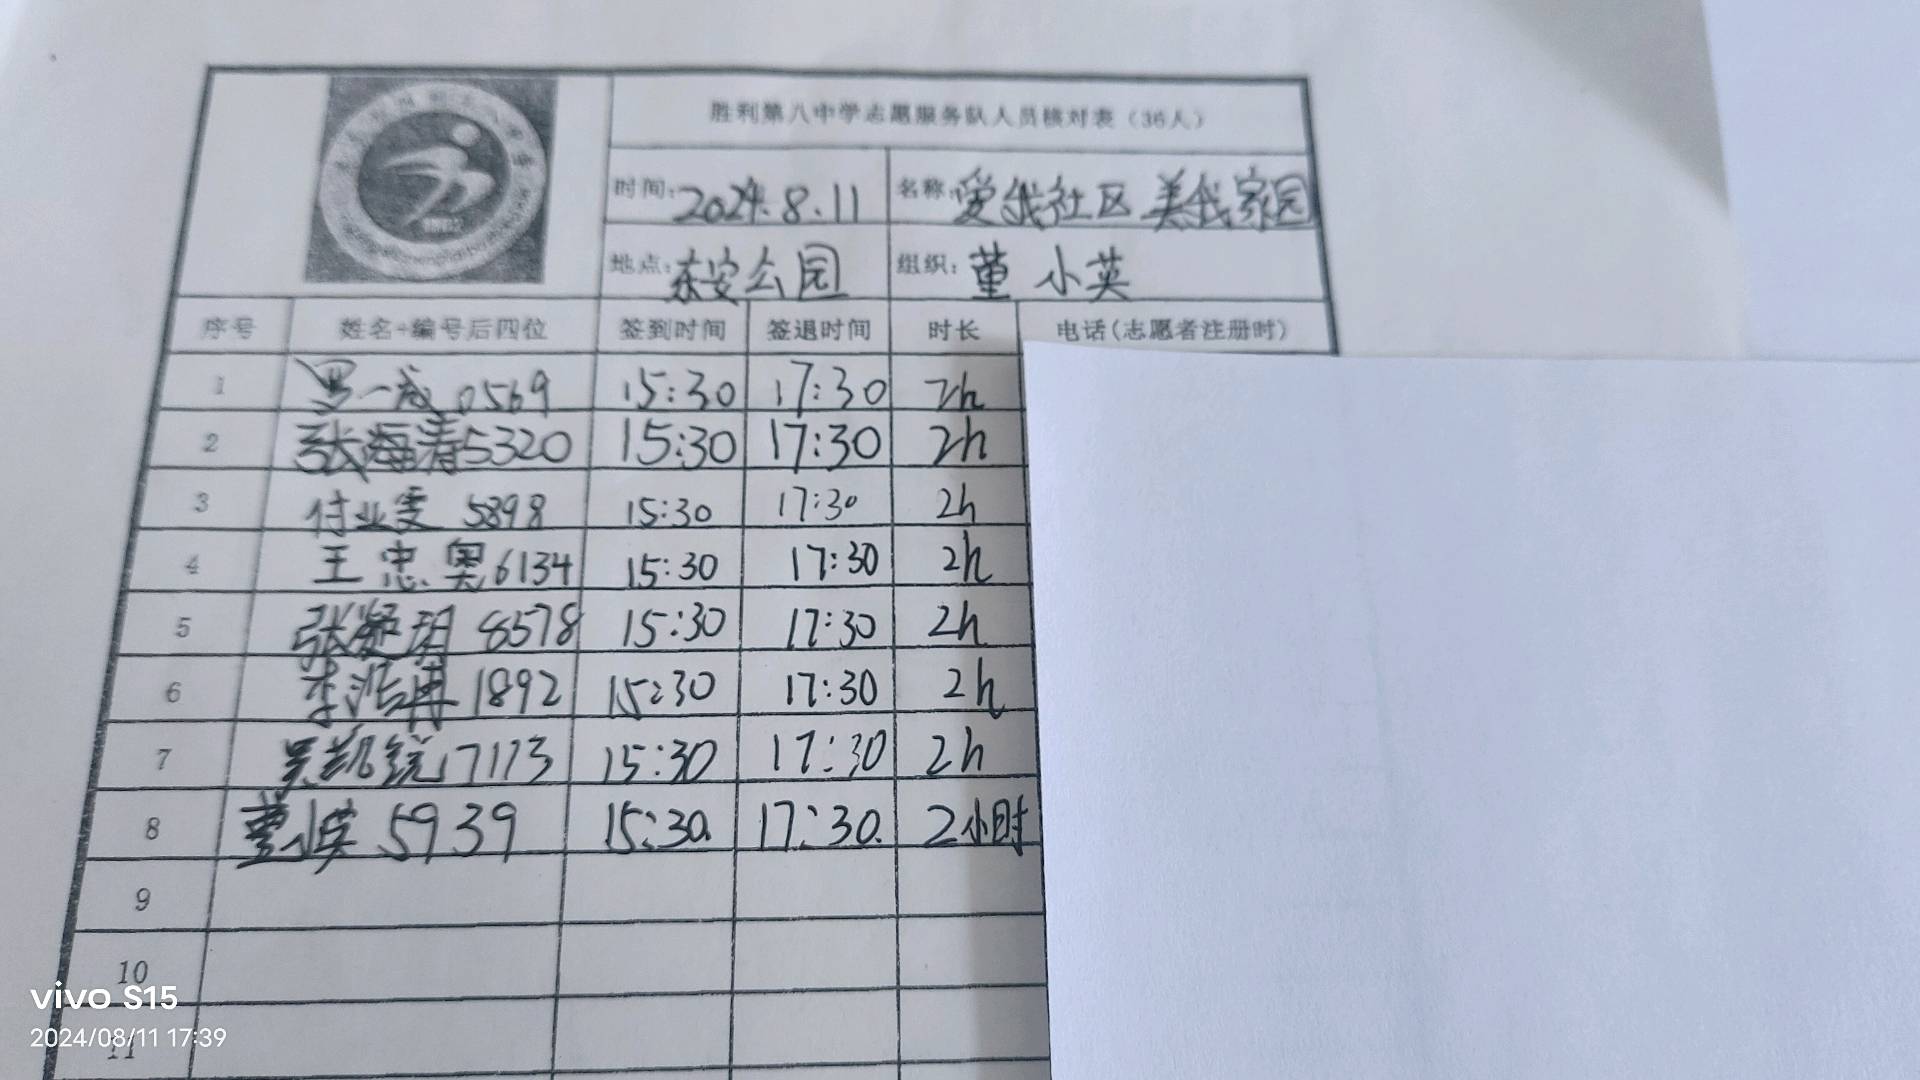 胜利第八中学志愿服务队人员核对表（36人）
时间：2024.8.11 名称：爱我社区 美我家园
地点：东安公园 组织：董小英
序号 姓名+编号后四位 签到时间 签退时间 时长 电话（志愿者注册时）
1 罗一成 0569 15:30 17:30 2h
2 张海涛5320 15:30 17:30 2h
3 付业雯 5898 15:30 17:30 2h
4 王忠奥6134 15:30 17:30 2h
5 张凝玥 8578 15:30 17:30 2h
6 李浩博 1892 15:30 17:30 2h
7 吴凯锐17113 15:30 17:30 2h
8 董小英 5939 15:30. 17:30. 2小时
9
10
11
vivo S15
2024/08/11 17:39